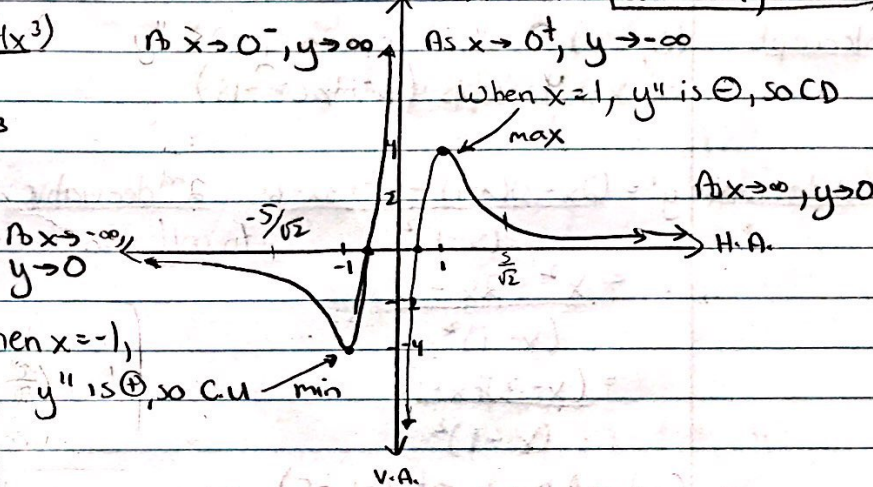 (x³)
As x→0⁻, y→∞
As x→0⁺, y→-∞
When x=1, y" is ⊖, so CD
max
3
4
2
As x→∞, y→0
-5/√2
As x→-∞,
y→0
-1
1
5/√2
H.A.
-2
-4
hen x=-1,
y" is ⊕, so C.U
min
V.A.